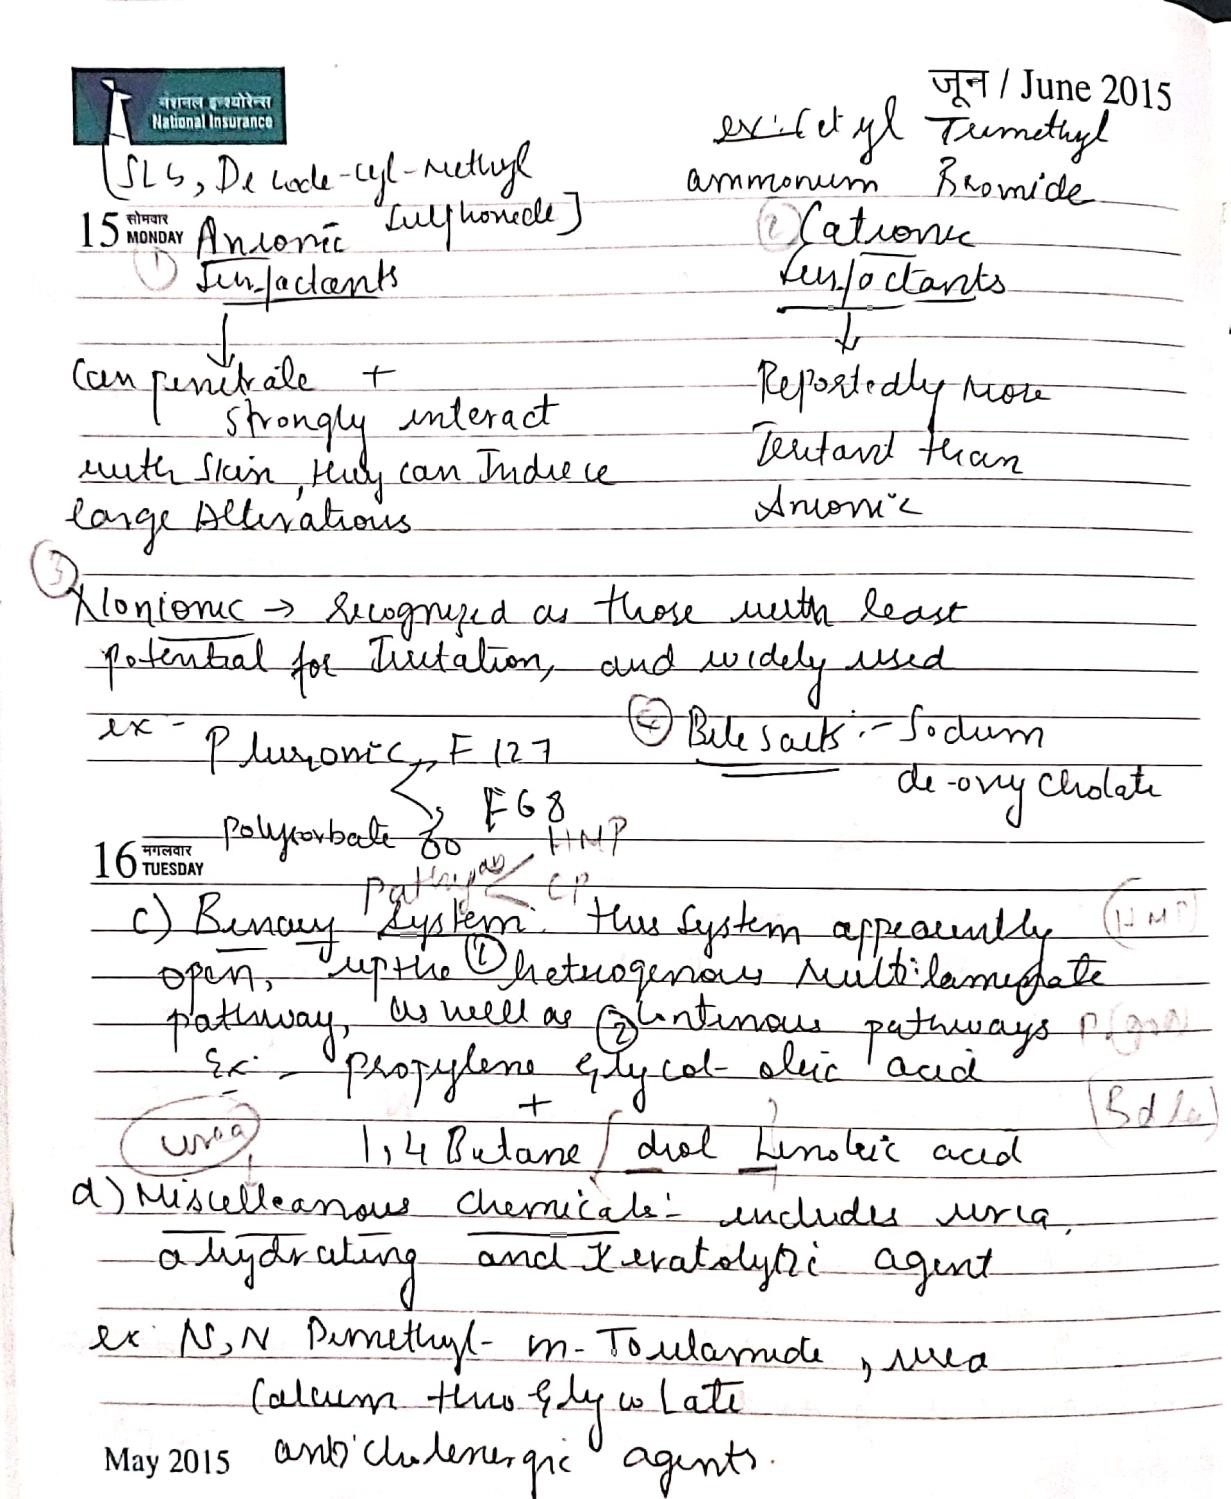 नेशनल इन्श्योरेन्स
National Insurance
जून / June 2015
ex: Cetyl Trimethyl
ammonum Bromide
[SLS, Decode-cyl-methyl
sulphoxide]
15 सोमवार MONDAY
① Anionic
Surfactants
② Cationic
Surfactants
Can penitrate +
strongly interact
with Skin, they can Induce
large Alterations
Reportedly more
Irritant than
Anionic
③ Nonionic → Recognized as those with least
potential for Irritation, and widely used
ex - Pluronic, F 127
F68
④ Bile salts :- Sodium
de-oxy cholate
polysorbate 80
16 मंगलवार TUESDAY
HMP
Pathway
CP
c) Binary System: this system appearently (HMP)
open, up the ① hetrogenous multilamellate
pathway, as well as ② Continous pathways
Ex:- propylene Glycol- oleic acid
+
urea
1,4 Butane / diol Linoleic acid
d) Miscelleanous chemicals:- includes urea,
a hydrating and Keratolytic agent
ex N,N Dimethyl- m-Toulamide, urea
Calcium thioGlycolate
anticholenergic agents.
May 2015